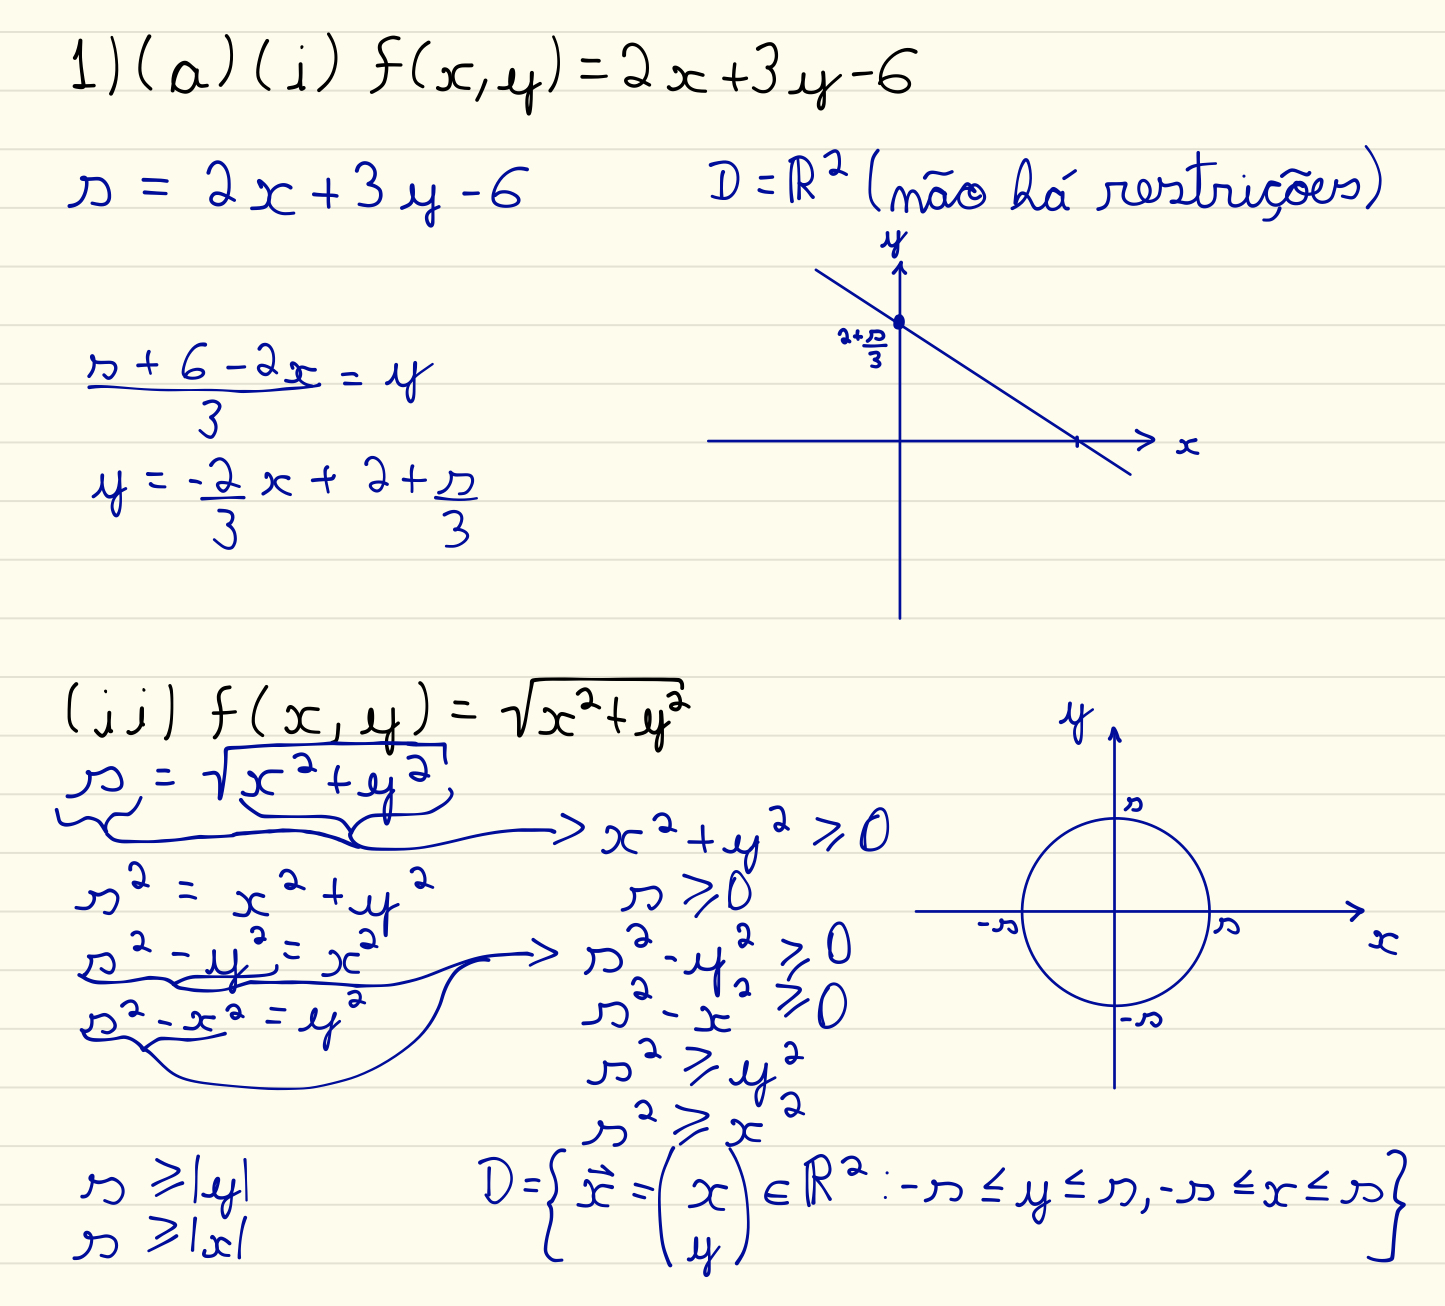 1) (a) (i) f(x,y) = 2x+3y-6
s = 2x+3y-6
D = ℝ² (não há restrições)
y
2+s/3
x
(s+6-2x)/3 = y
y = -2/3 x + 2 + s/3
(ii) f(x,y) = √(x²+y²)
s = √(x²+y²)
x²+y² ⩾ 0
s² = x²+y²
s ⩾ 0
s² - y² = x²
s² - y² ⩾ 0
s² - x² = y²
s² - x² ⩾ 0
s² ⩾ y²
s² ⩾ x²
y
s
-s
s
x
-s
s ⩾ |y|
s ⩾ |x|
D = { x⃗ = (x y) ∈ ℝ² : -s ≤ y ≤ s, -s ≤ x ≤ s }